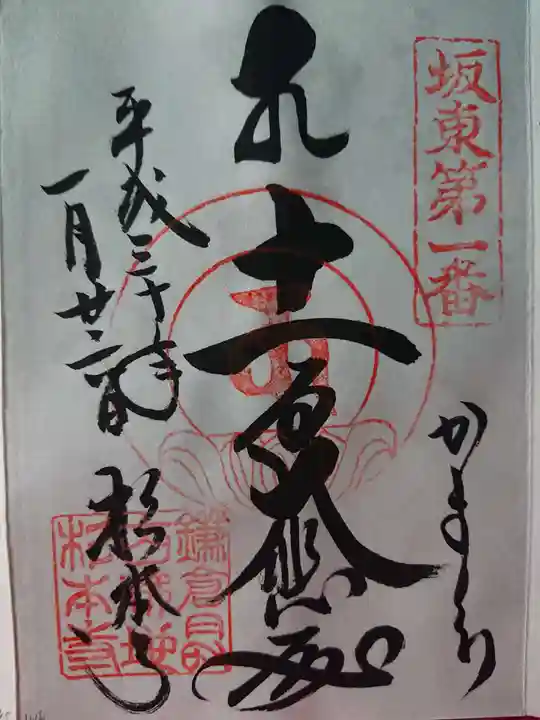 坂東第一番
かまくら
十一面大悲殿
平成三十年
一月廿二日
杉本寺
鎌倉最
杉本寺